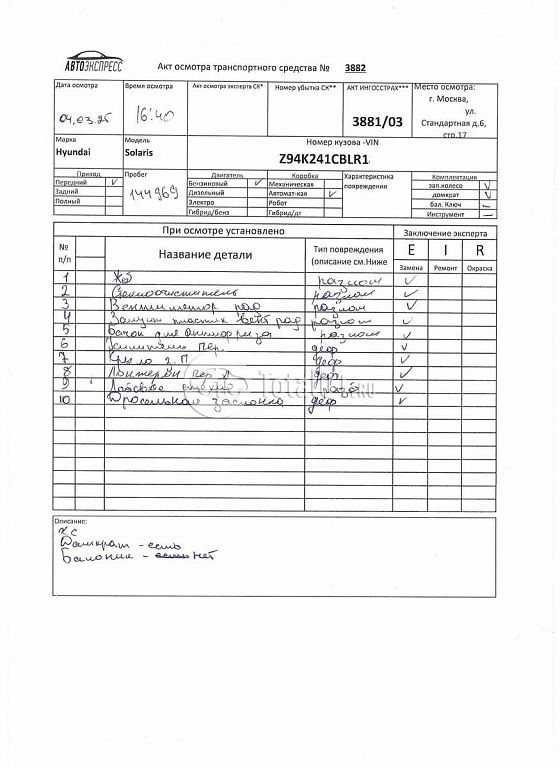 АВТОЭКСПРЕСС
Акт осмотра транспортного средства № 3882
Дата осмотра Время осмотра Акт осмотра эксперта СК* Номер убытка СК** АКТ ИНГОССТРАХ*** Место осмотра:
04.03.25 16:40 3881/03 г. Москва,
ул.
Стандартная д.6,
стр.17
Марка Модель Номер кузова -VIN
Hyundai Solaris Z94K241CBLR1
Привод Пробег Двигатель Коробка Характеристика повреждения Комплектация
Передний V 144969 Бензиновый V Механическая зап.колесо V
Задний Дизельный Автомат-кая V домкрат V
Полный Электро Робот бал. Ключ –
Гибрид/бенз Гибрид/дт Инструмент –
При осмотре установлено Заключение эксперта
№ п/п Название детали Тип повреждения (описание см.Ниже E I R
Замена Ремонт Окраска
1 разлом V
2 разлом V
3 Вентилятор рад разлом V
4 пластик рад разлом V
5 Бачок для Антифриза разлом V
6 Усилитель Пер. деф V
7 деф V
8 Лонжерон пер Л деф V
9 Лобовое стекло V
10 Дросельная заслонка деф V
Total01.RU
Описание:
Домкрат - есть
Балоник - есть нет